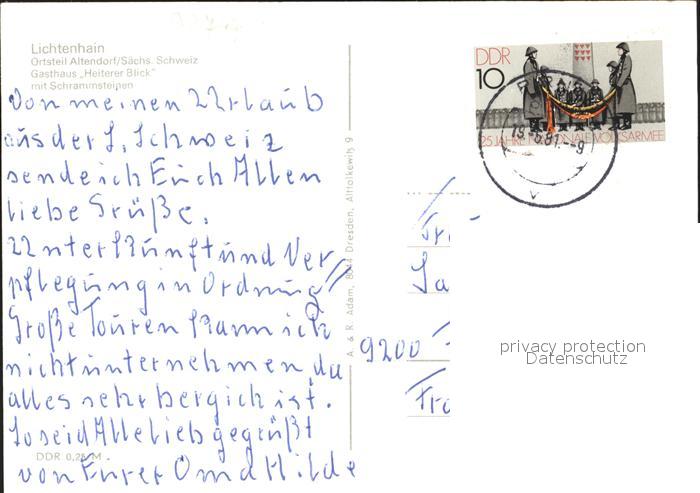 Lichtenhain
Ortsteil Altendorf/Sächs. Schweiz
Gasthaus „Heiterer Blick"
mit Schrammsteinen
Von meinen Urlaub
aus der S. Schweiz
sende ich Euch Allen
liebe Grüße.
Unterkunft und Ver
pflegung in Ordnung
Große Touren kann ich
nicht unternehmen da
alles sehr bergich ist.
So seid Alle lieb gegrüßt
von Eurer Oma Hilde
DDR 0,20 M
A. & R. Adam, Dresden, Alttolkewitz 9
DDR
10
25 JAHRE NATIONALE VOLKSARMEE
9200
privacy protection
Datenschutz